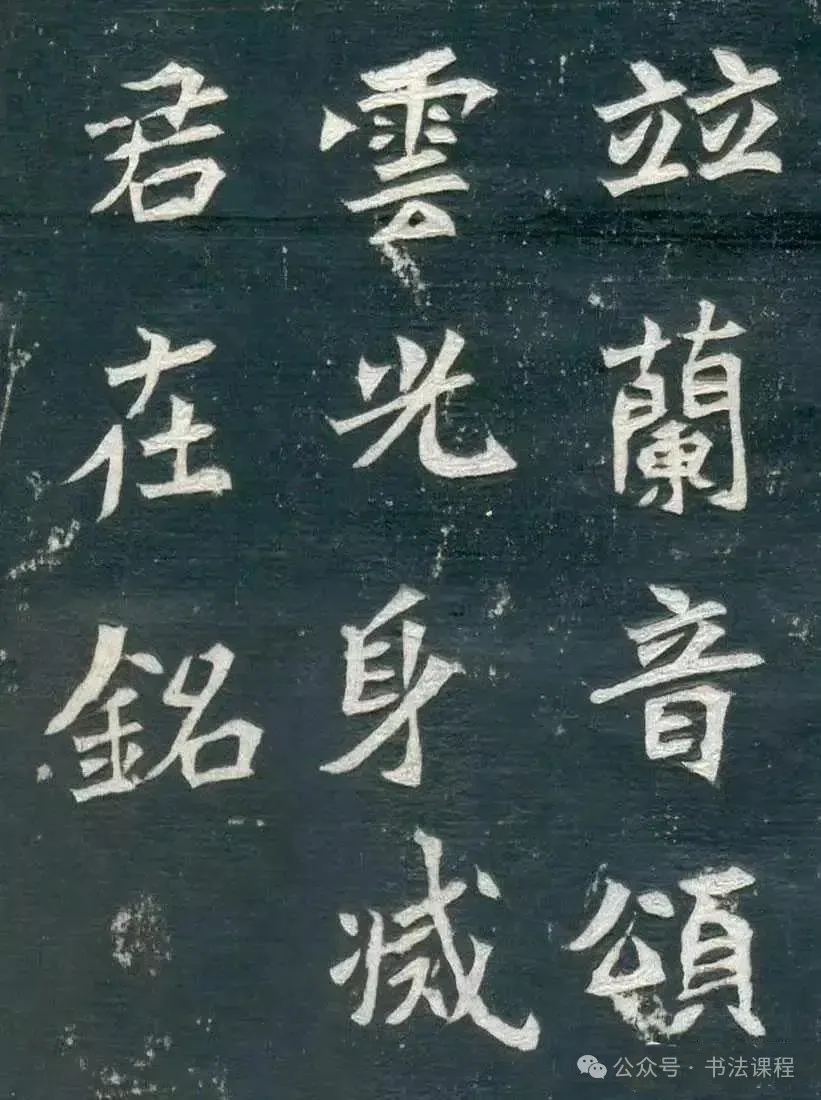 竝蘭音頌
雲光身滅
君在銘
公众号 · 书法课程